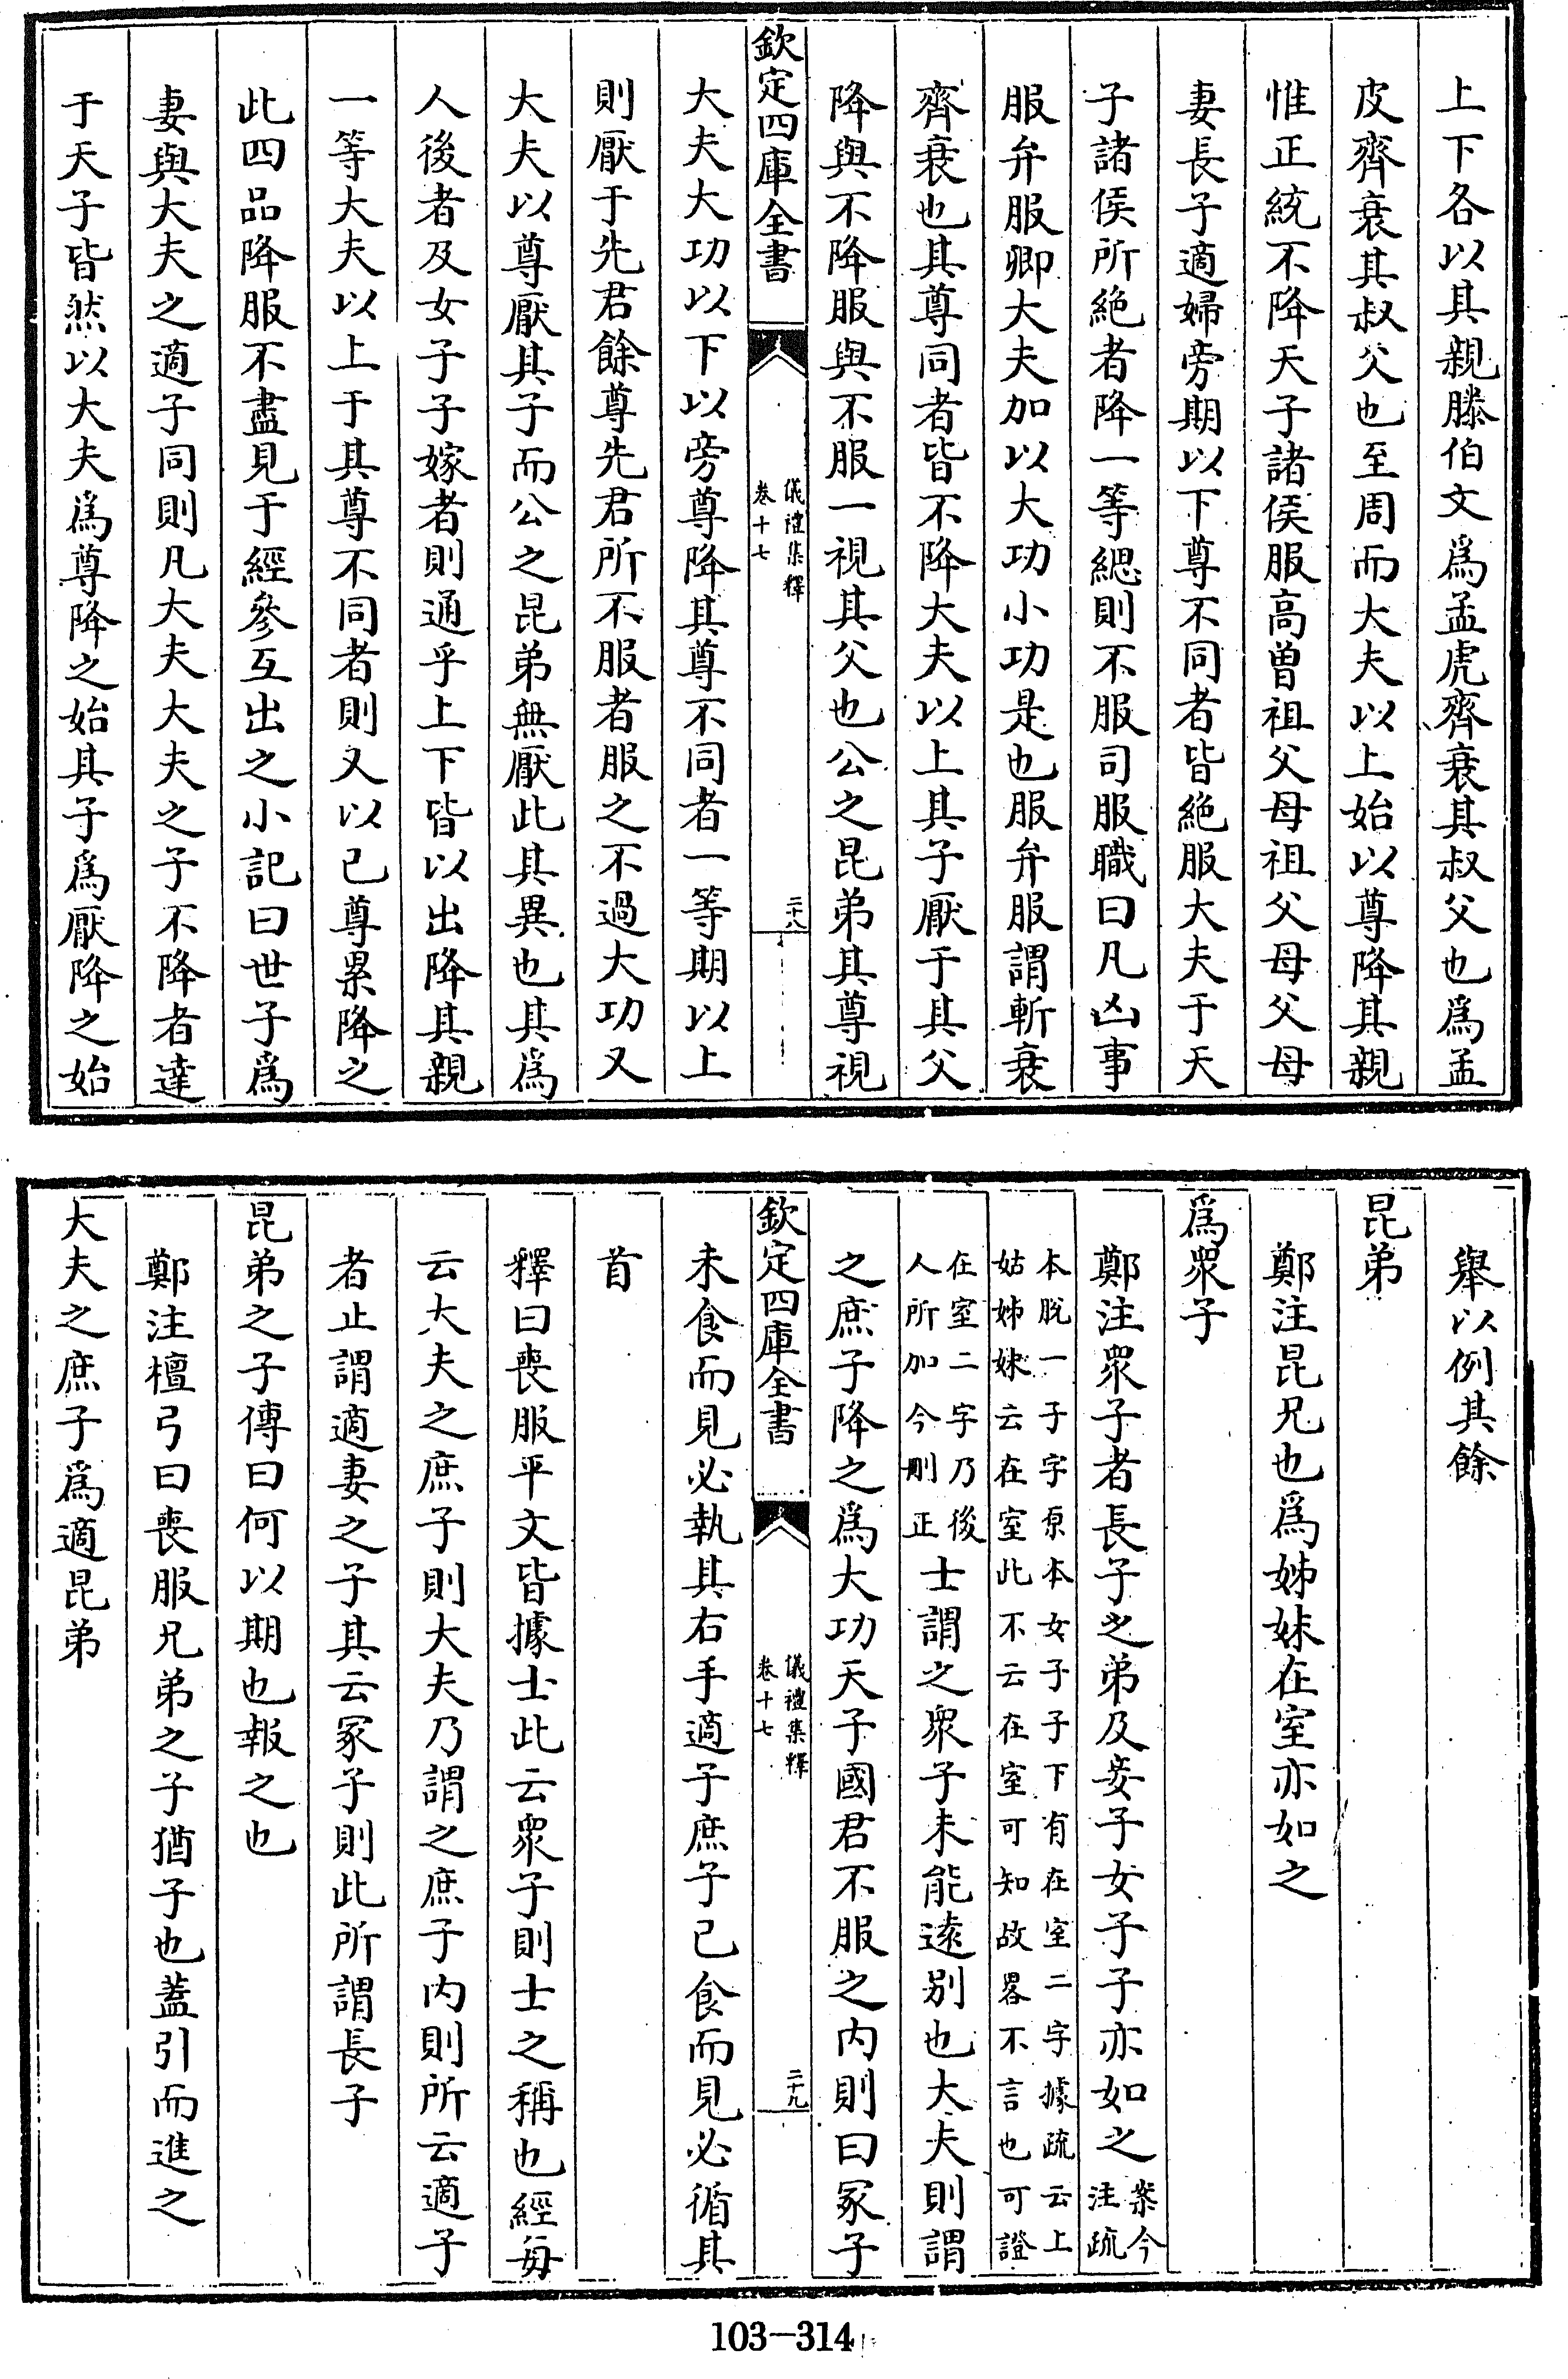 上下各以其親滕伯文爲孟虎齊衰其叔父也爲孟
皮齊衰其叔父也至周而大夫以上始以尊降其親
惟正統不降天子諸侯服高曽祖父母祖父母父母
妻長子適婦旁期以下尊不同者皆絶服大夫于天
子諸侯所絶者降一等緦則不服司服職曰凡凶事
服弁服卿大夫加以大功小功是也服弁服謂斬衰
齊衰也其尊同者皆不降大夫以上其子厭于其父
降與不降服與不服一視其父也公之昆弟其尊視
欽定四庫全書
儀禮集釋
卷十七
二十八
大夫大功以下以旁尊降其尊不同者一等期以上
則厭于先君餘尊先君所不服者服之不過大功又
大夫以尊厭其子而公之昆弟無厭此其異也其爲
人後者及女子子嫁者則通乎上下皆以出降其親
一等大夫以上于其尊不同者則又以已尊累降之
此四品降服不盡見于經參互出之小記曰世子爲
妻與大夫之適子同則凡大夫大夫之子不降者達
于天子皆然以大夫爲尊降之始其子爲厭降之始
舉以例其餘
昆弟
鄭注昆兄也爲姊妹在室亦如之
爲衆子
鄭注衆子者長子之弟及妾子女子子亦如之案今
注疏
本脫一子字原本女子子下有在室二字據疏云上
姑姊妹云在室此不云在室可知故畧不言也可證
在室二字乃後
人所加今刪正士謂之衆子未能遠别也大夫則謂
之庶子降之爲大功天子國君不服之内則曰冢子
欽定四庫全書
儀禮集釋
卷十七
二十九
未食而見必執其右手適子庶子已食而見必循其
首
釋曰喪服平文皆據士此云衆子則士之稱也經毎
云大夫之庶子則大夫乃謂之庶子内則所云適子
者止謂適妻之子其云冢子則此所謂長子
昆弟之子傳曰何以期也報之也
鄭注檀弓曰喪服兄弟之子猶子也蓋引而進之
大夫之庶子爲適昆弟
103-314